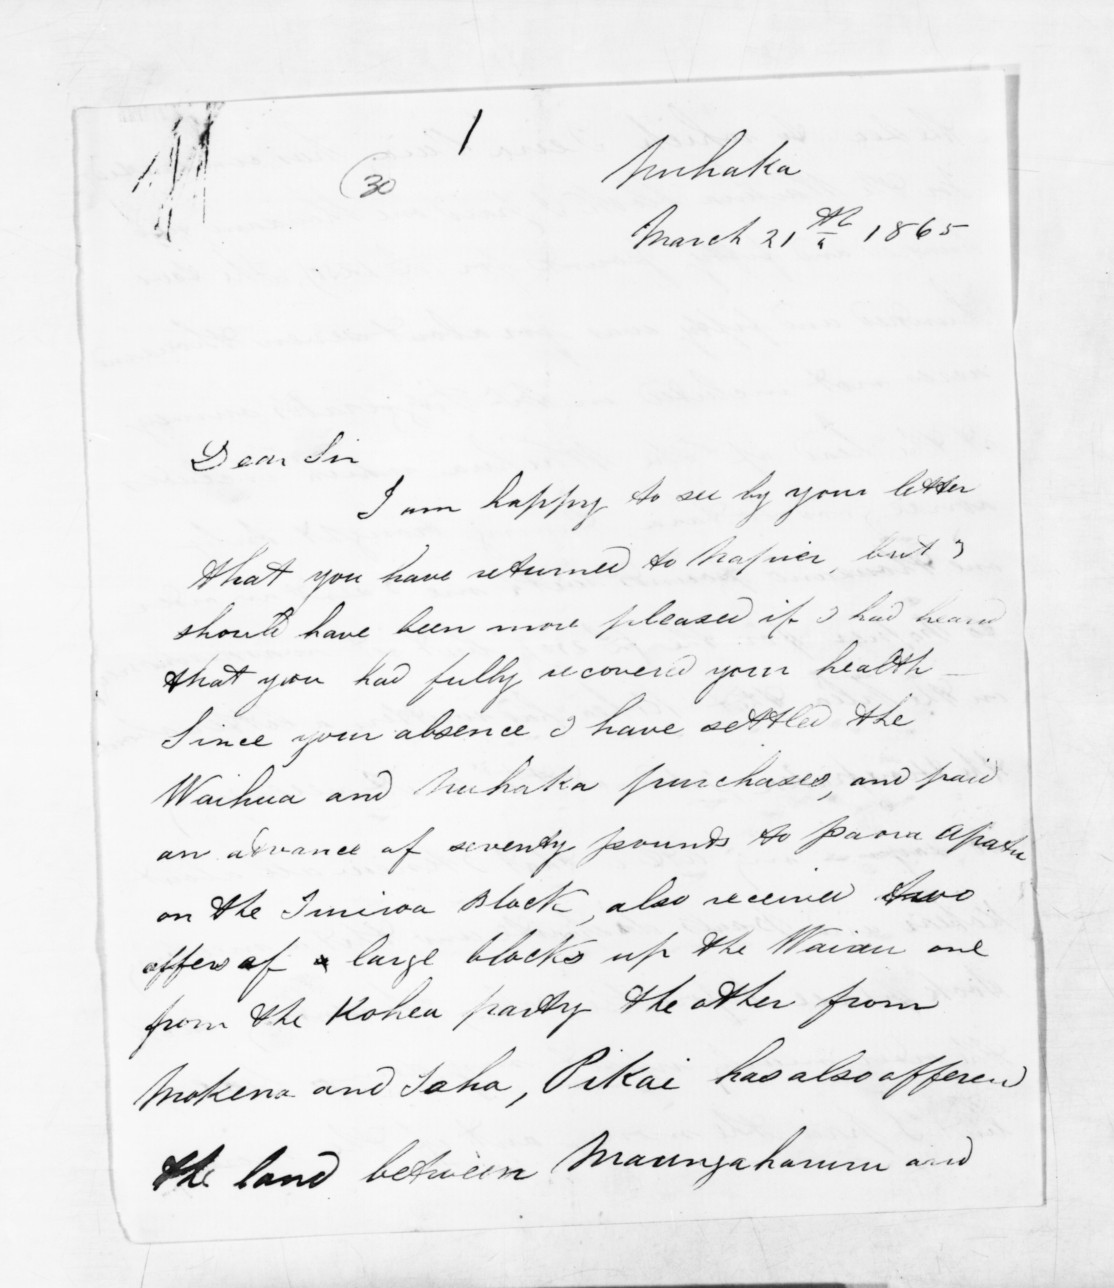 1
30
Nuhaka
March 21th 1865
Dear Sir
I am happy to see by your letter
that you have returned to Napier, but I
should have been more pleased if I had heard
that you had fully recovered your health –
Since your absence I have settled the
Waihua and Nuhaka purchases, and paid
an advance of seventy pounds to Paora Apatu
on the Block, also received two
offers of large blocks up the Waiau one
from the Kohea party the other from
Mokena and Toha, Pikai has also offered
the land between Maungaharuru and